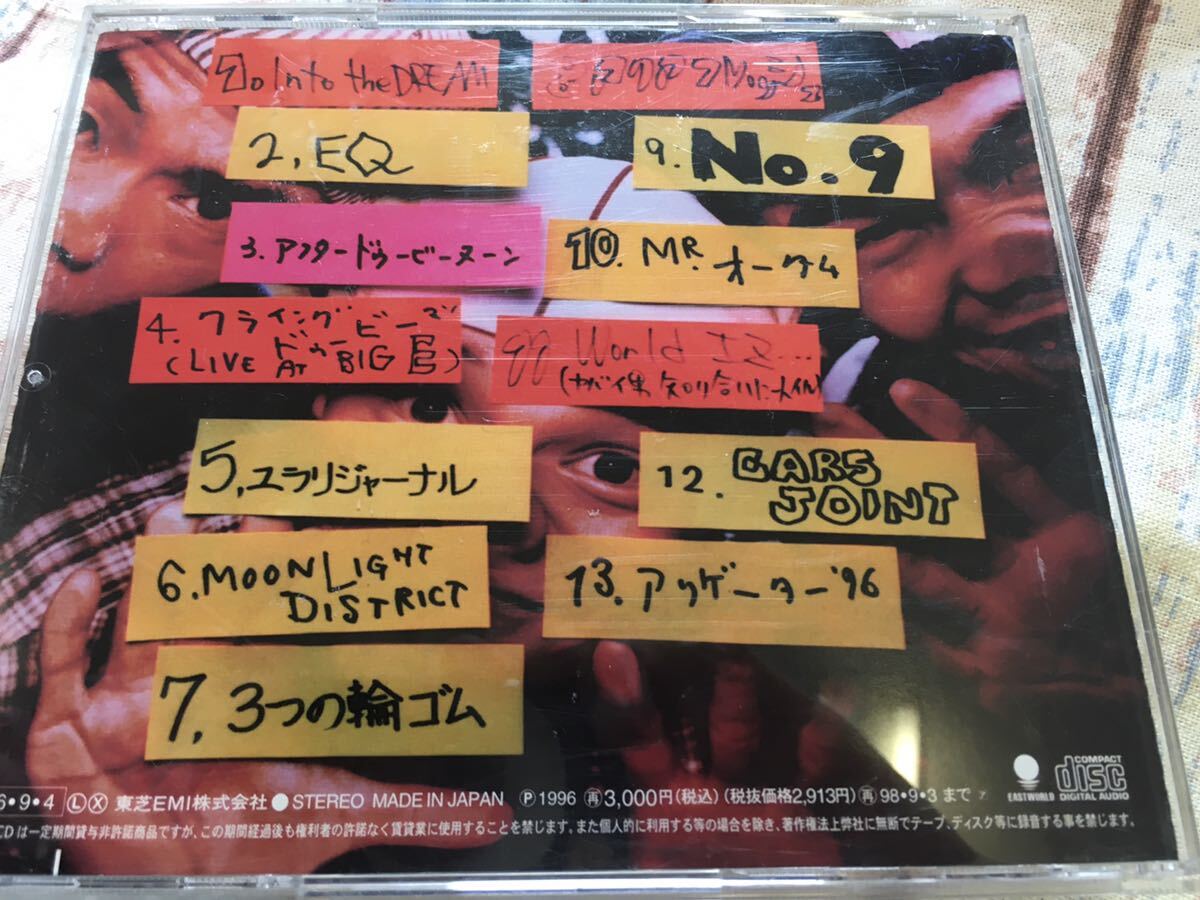 Into the DREAM
2, EQ
3. アフタードゥービーヌーン
4. フライングドゥービーズ
(LIVE AT BIG 館)
5, ユラリジャーナル
6. MOONLIGHT
DISTRICT
7, 3つの輪ゴム
9. No. 9
10. MR. オークム
World
12. EARS
JOINT
13. アリゲーター'96
6・9・4 Ⓛ Ⓧ 東芝EMI株式会社 ● STEREO MADE IN JAPAN Ⓟ 1996 ㊢ 3,000円(税込) (税抜価格2,913円) ㊢ 98・9・3 まで
EASTWORLD
COMPACT
disc
DIGITAL AUDIO
CDは一定期間貸与非許諾商品ですが、この期間経過後も権利者の許諾なく賃貸業に使用することを禁じます。また個人的に利用する等の場合を除き、著作権法上弊社に無断でテープ、ディスク等に録音する事を禁じます。